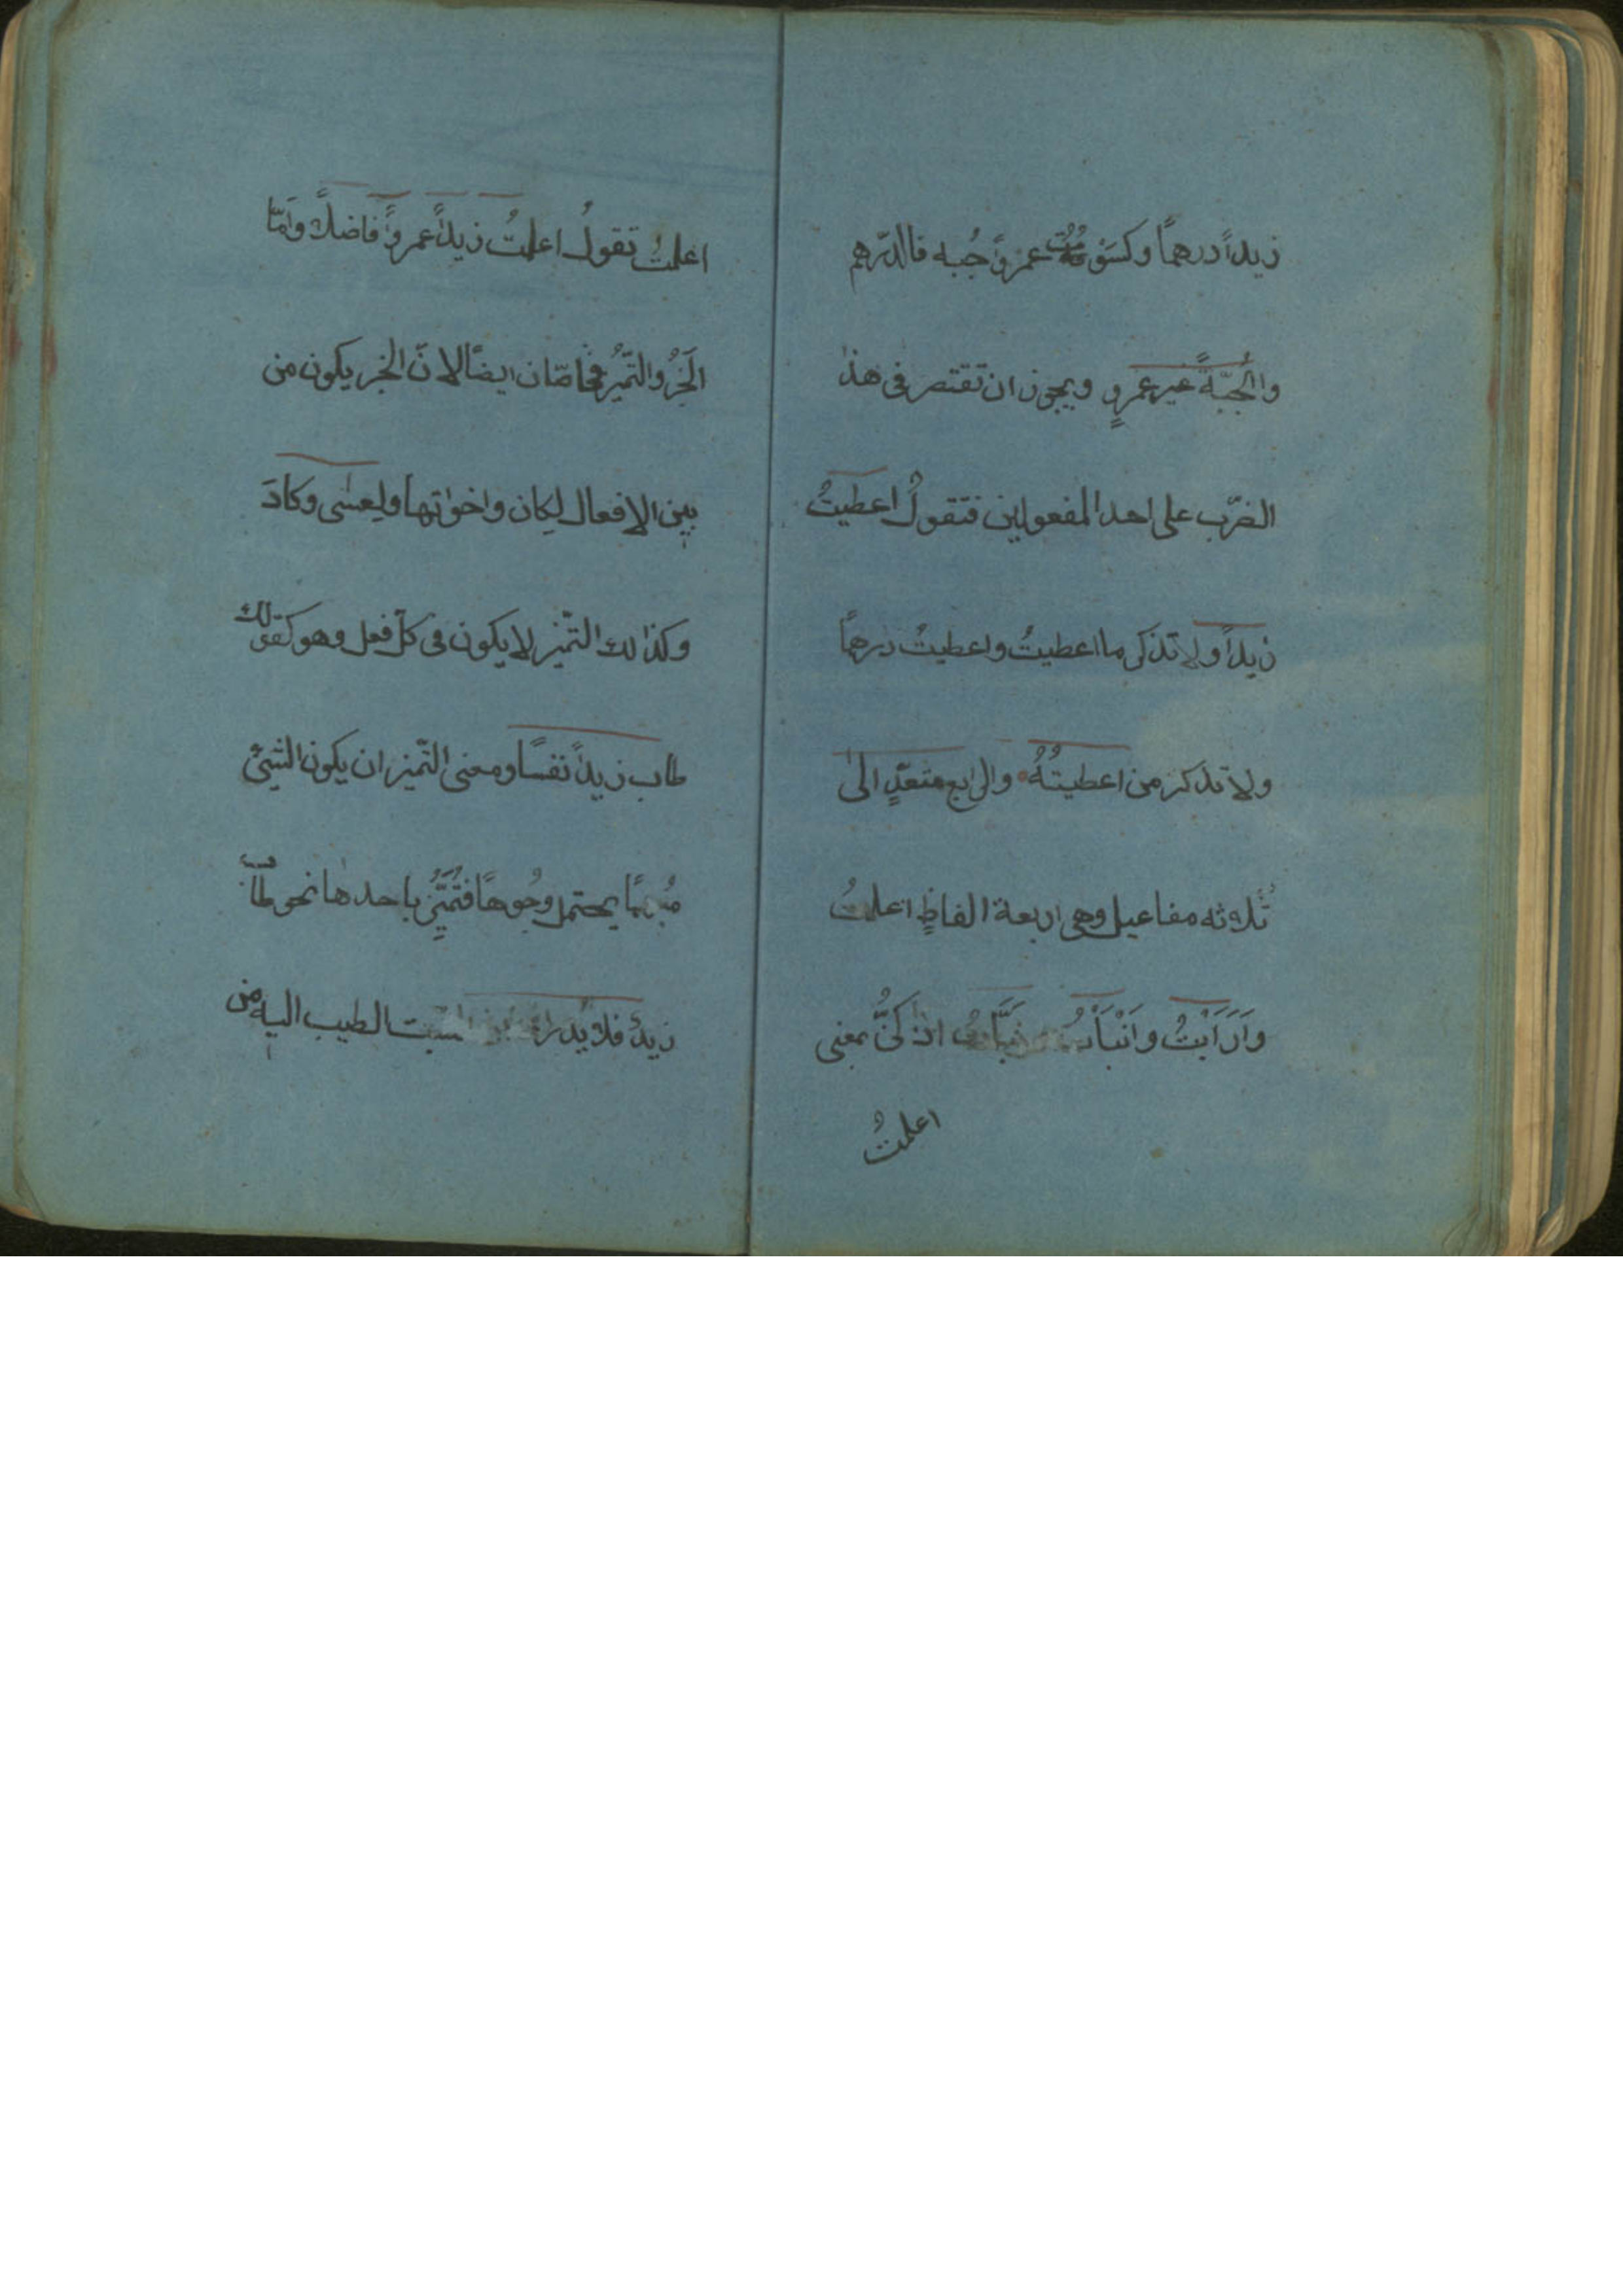 زيداً درهمًا وكسَوتُ عمرواً جُبه فالدّرهم
والجُبّةً غير عمرٍو ويجوز ان تقتصر فى هذا
الضّرب على احد المفعولين فتقولُ اعطيتُ
زيداً ولا تذكر ما اعطيتُ واعطيتُ درهمًا
ولا تذكر من اعطيتُهُ والرابع متعدٍّ الىٰ
ثُلاثه مفاعيل وهى اربعة الفاظٍ اعلمتُ
وَاَرَاَيْتُ وَاَنْبَأْتُ اذا كنَّ بمعنى
اعلمتُ
اعلمتُ تقولُ اعلمتُ زيداً عمرواً فاضلاً وَامّا
الخبرُ والتّميزُ فخاصّان ايضًا لانّ الخبر يكون من
بين الافعال لِكان واخواتها ولِعسٰى وكادَ
وكذالك التّميز لا يكون فى كلّ فعل وهو كقولك
طاب زيداً نفسًا ومعنى التّميز ان يكون الشيئ
مُبهمًا يحتمل وجُوهًا فتُمَيِّزُ باحدها نحو طابَ
زيدٌ فلا يُدرا الطيب اليه من